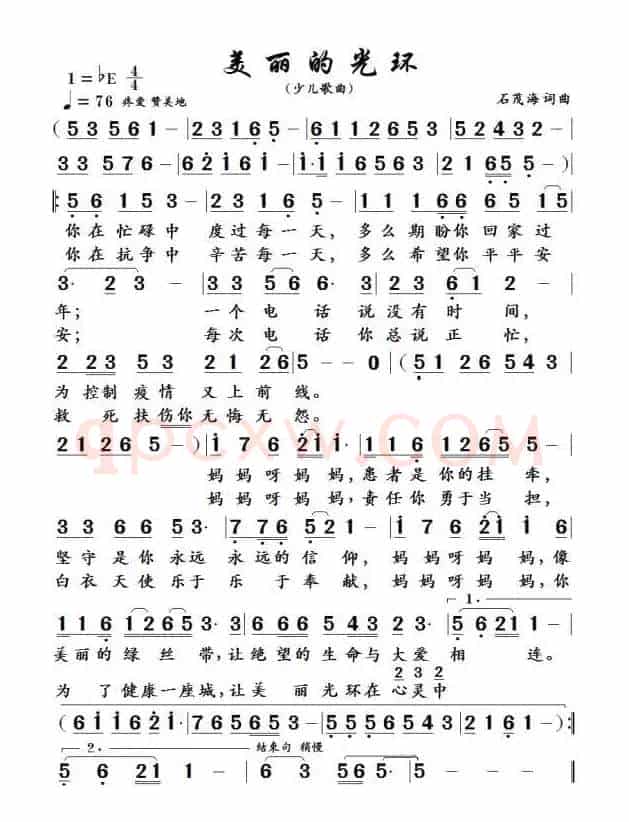 美丽的光环
（少儿歌曲）
1=♭E 4/4
♩=76 疼爱 赞美地
石茂海 词曲
(5 3 5 6 1 - | 2 3 1 6 5 - | 6 1 1 2 6 5 3 | 5 2 4 3 2 -
3 3 3 5 7 6 - | 6 2 1 6 1 - | 1· 1 1 6 5 6 3 | 2 1 6 5 5 -)
5 6 1 5 3 - | 2 3 1 6 5 - | 1 1 1 6 6 5 | 1 1 2
你在忙碌中 度过每一天，多么期盼你 回家过
你在抗争中 辛苦每一天，多么希望你 平平安
3· 2 3 - | 3 3 5 6 6 3· | 0 2 3 6 1 2 -
年； 一个电话 说没有时间，
安； 每次电话 你总说正忙，
2 2 3 5 3 2 1 2 6 | 5 - - 0 | (5 1 2 6 5 5 -
为控制疫情 又上前线。
救死扶伤你 无悔无怨。
2 1 2 6 5 -) | 1 7 6 2 1 1· | 1 1 6 1 2 6 5 5 -
妈妈呀妈妈，患者是你的挂牵，
妈妈呀妈妈，责任你勇于当担，
3 3 6 6 5 3· | 7 7 6 5 5 - | 1 7 6 2 1 1 6
坚守是你永远 永远的信仰，妈妈呀妈妈，像
白衣天使乐于 乐于奉献，妈妈呀妈妈，你
1 1 6 1 2 6 5 3 | 2 1 6 6 6 5 4 3 | 2· 3 - | 5 6 2 1 -
1.
美丽的绿丝带，让绝望的生命与大爱相连。
2 3 2
为了健康一座城，让美丽光环在心灵中
(6 1 1 6 2 1· | 7 6 5 5 6 3 - | 5 5 5 5 5 6 4 3 | 2 1 6 1 -)
2.
结束句 稍慢
5 6 2 1 1 - | 1 - - - | 6 3 5 5 1 | 1 - - -
qpcxw.COM